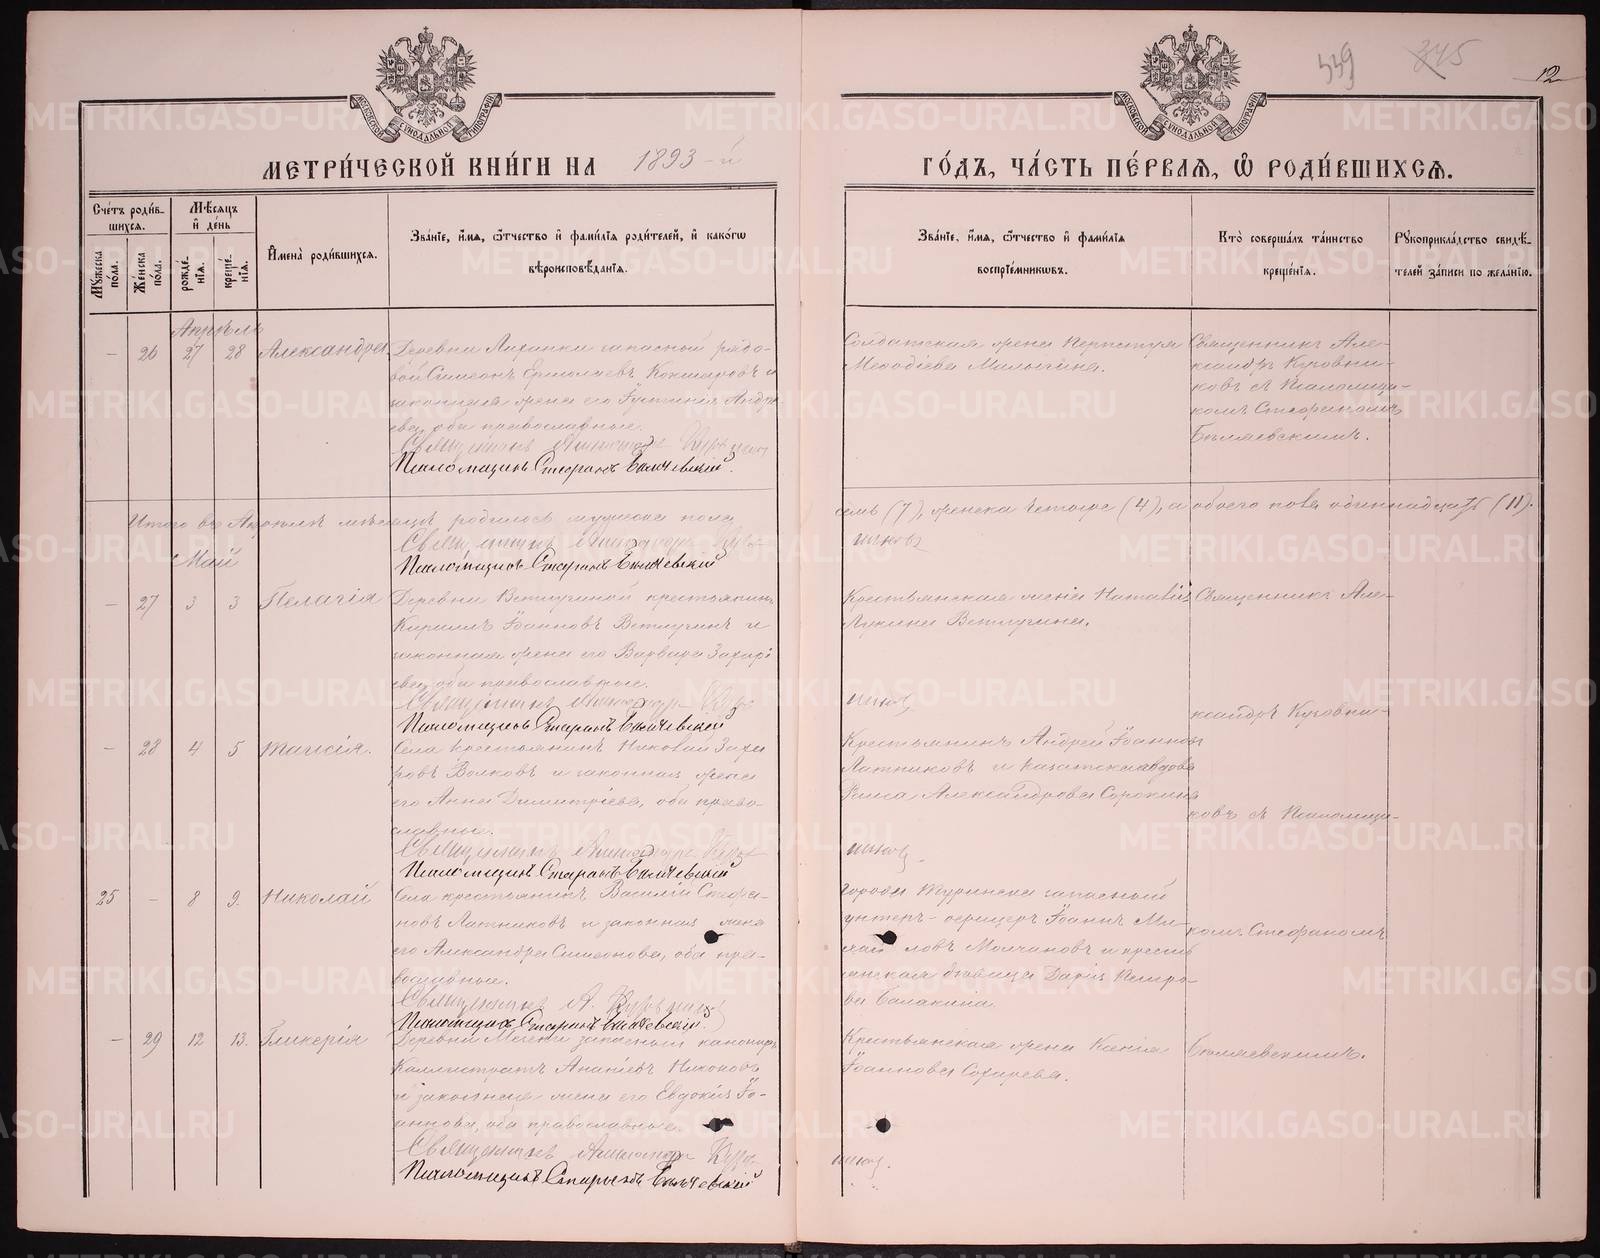 339 345 12
МОСКОВСКОЙ СѴНОДАЛЬНОЙ ТИПОГРАФІИ
МЕТРИЧЕСКОЙ КНИГИ НА 1893-й
Счетъ родив-
шихся.
Мѣсяцъ
и день
Мужеска
пола.
Женска
пола.
рожде-
нія.
креще-
нія.
Имена родившихся.
Званіе, имя, отчество и фамилія родителей, и какого
вѣроисповѣданія.
Апрѣль
— 26 27 28 Александра
Деревни Лиханки запасный рядо-
вой Симеонъ Ермолаевъ Кокшаровъ и
законная жена его Іустинія Андре-
ева, оба православные.
Священникъ Александръ
Псаломщикъ Стефанъ Бѣляевскій.
Итого въ Апрѣлѣ мѣсяцѣ родилось мужеска пола
Священникъ Александръ
Псаломщикъ Стефанъ Бѣляевскій
Май
— 27 3 3 Пелагія
Деревни Ветлугиной крестьянинъ
Кириллъ Іоанновъ Ветлугинъ и
законная жена его Варвара Захарі-
ева, оба православные.
Священникъ Александръ
Псаломщикъ Стефанъ Бѣляевскій
— 28 4 5 Таисія.
Села крестьянинъ Николай Заха
ровъ Волковъ и законная жена
его Анна Димитріева, оба право-
славные.
Священникъ Александръ
Псаломщикъ Стефанъ Бѣляевскій
25 — 8 9. Николай
Села крестьянинъ Василій Стефа-
новъ Латниковъ и законная жена
его Александра Симеонова, оба пра-
вославные.
Священникъ А.
Псаломщикъ Стефанъ Бѣляевскій.
— 29 12 13. Гликерія
Деревни запасный канониръ
Каллистратъ Ананіевъ Никоновъ
и законная жена его Евдокія Іо-
аннова, оба православные.
Священникъ Александръ
Псаломщикъ Стефанъ Бѣляевскій
МОСКОВСКОЙ СѴНОДАЛЬНОЙ ТИПОГРАФІИ
ГОДЪ, ЧАСТЬ ПЕРВАЯ, Ѡ РОДИВШИХСЯ.
Званіе, имя, отчество и фамилія
воспріемниковъ.
Кто совершалъ таинство
крещенія.
Рукоприкладство свидѣ-
телей записи по желанію.
Солдатская жена Перпетуя
Меѳодіева Милыгина.
Священникъ Але-
ксандръ Куровни-
ковъ съ Псаломщи-
комъ Стефаномъ
Бѣляевскимъ.
семь (7), женска четыре (4), а обоего пола одиннадцать (11).
никовъ
Крестьянская жена Наталія
Лукина Ветлугина.
Священникъ Але-
никовъ
ксандръ Куровни-
Крестьянинъ Андрей Іоанновъ
Латниковъ и вдова
Александрова Сорокина
ковъ съ Псаломщи-
никовъ
города Туринска запасный
унтеръ-офицеръ Іоаннъ Ми-
хаи ловъ Молчановъ и крестьянская
дѣвица Дарія Петро-
ва Балакина
комъ Стефаномъ
Крестьянская жена Ксенія
Іоаннова Сохарева.
Бѣляевскимъ.
никовъ.
METRIKI.GASO-URAL.RU